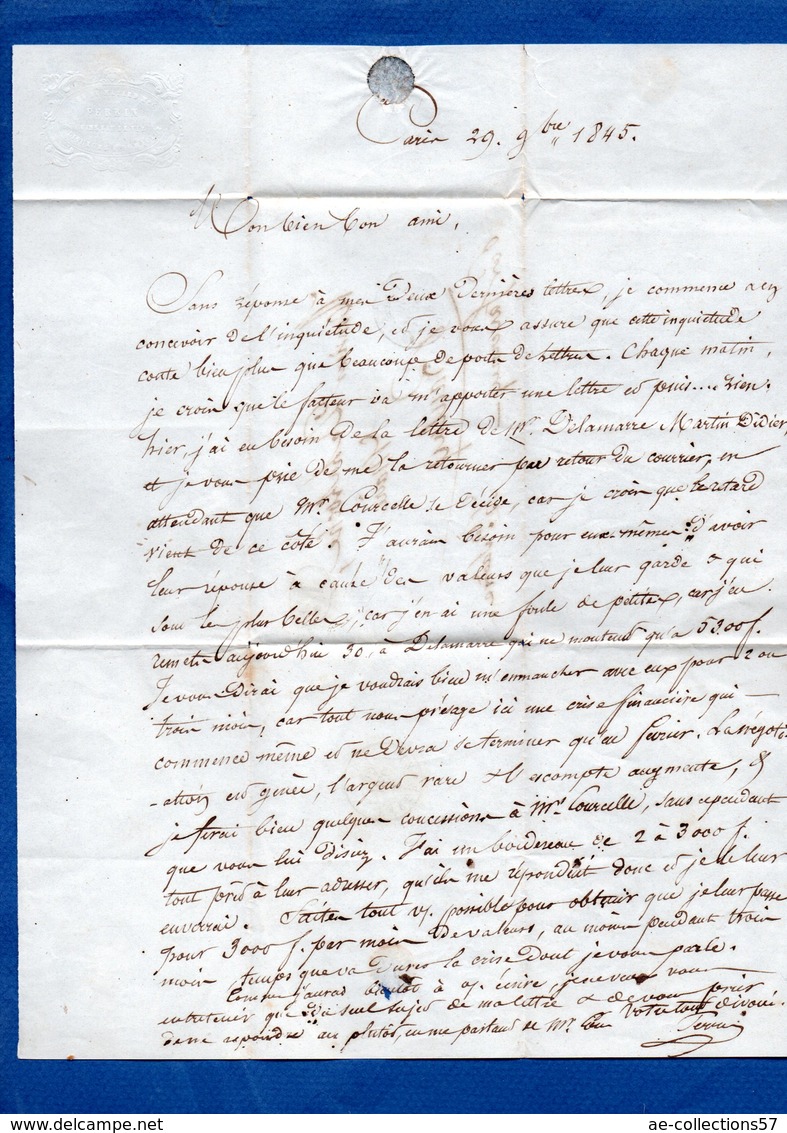 Paris 29. 9bre 1845.
Mon bien bon ami,
Sans réponse à mes deux dernières lettres, je commence à en
concevoir de l'inquiétude, et je vous assure que cette inquiétude
coute bien plus que beaucoup de ports de lettres. Chaque matin,
je crois que le facteur va m'apporter une lettre et puis.... rien.
hier, j'ai eu besoin de la lettre de Mr. Delamarre Martin Didier,
et je vous prie de me la retourner par retour du courrier, en
attendant que Mr Courcelle se décide, car je crois que le retard
vient de ce côté. J'aurais besoin pour eux-mêmes d'avoir
leur réponse à cause des valeurs que je leur garde & qui
sont les plus belles, car j'en ai une foule de petites, car j'en
remets aujourd'hui 30, à Delamarre qui ne montent qu'à 5300 f.
Je vous dirai que je voudrais bien m'emmancher avec eux pour 2 ou
trois mois, car tout nous présage ici une crise financière qui
commence même et ne devra se terminer qu'en février. La négoti-
-ation est gênée, l'argent rare & l'escompte augmente, &
je ferai bien quelques concessions à Mr. Courcelle, sans cependant
que vous lui disiez. J'ai un bordereau de 2 à 3000 f.
tout prêt à leur adresser, qu'ils me répondent donc et je le leur
enverrai. Faites tout vs. possible pour obtenir que je leur passe
pour 3000 f. par mois de valeurs, au moins pendant trois
mois temps que va durer la crise dont je vous parle.
Comme j'aurai bientôt à vs. écrire, je ne veux vous
entretenir que du seul sujet de ma lettre & de vous prier
de me répondre au plutôt, en me parlant de Mr. Cou
Votre tout dévoué.
ae-collections57